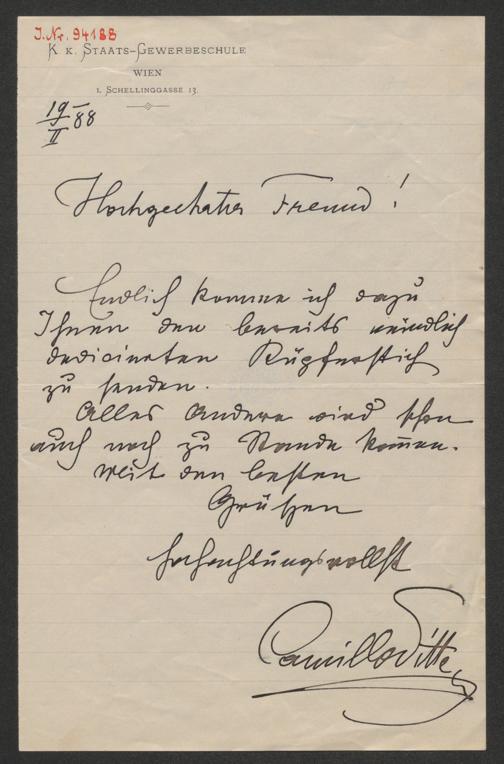 J.Nr. 94188
K. K. STAATS-GEWERBESCHULE
WIEN
I. SCHELLINGGASSE 13.
19/II 88
Hochgeehrter Freund!
Endlich komme ich dazu
Ihnen den bereits mündlich
dedicirten Kupferstich
zu senden.
Alles Andere wird schon
auch noch zu Stande kom̅en.
Mit den besten
Grüßen
hochachtungsvollst
Camillo Sitte